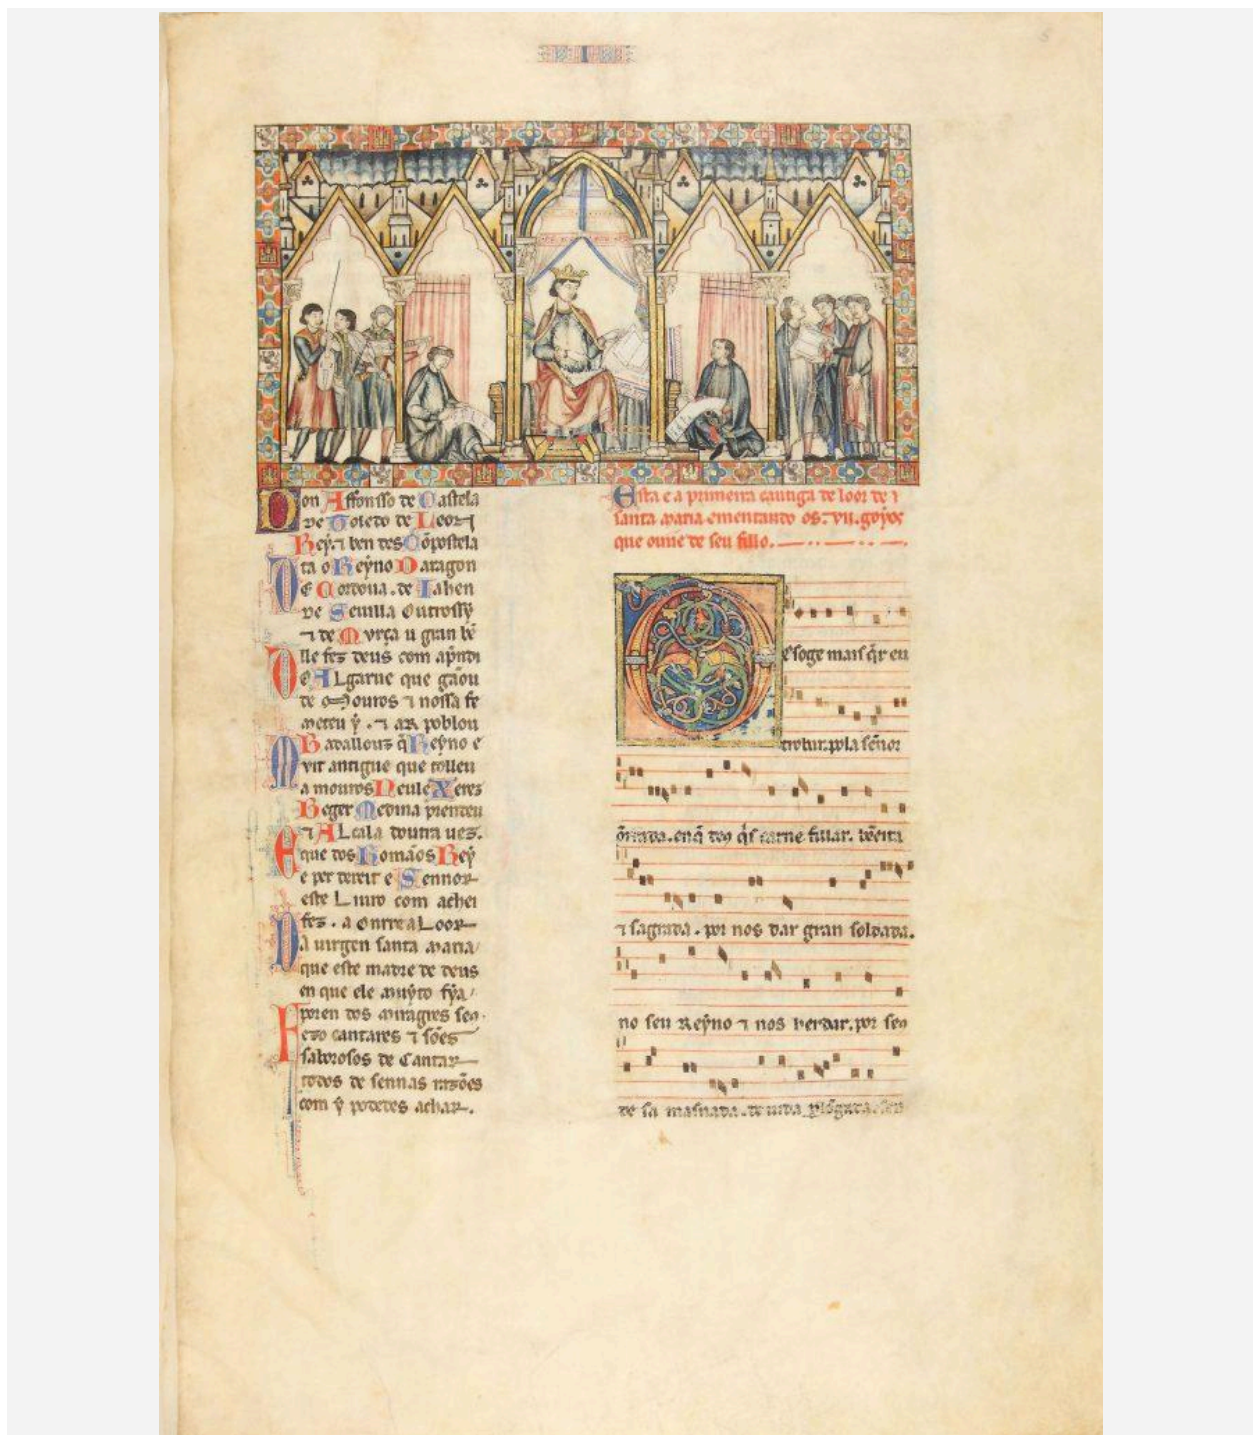 I
5
Don Affonsso de Castela
de Toledo de Leon ⁊
Rey. ⁊ ben des Cõpostela
ta o Reyno Daragon
De Cordoua. de Iahen
de Seuilla Outrossy
⁊ de Murça u gran bẽ
lle fez deus com aprendi
Do ALgarue que gãou
de Mouros ⁊ nossa fe
meteu y. ⁊ ar poblou
Badallouz q̃ Reyno e
Muit antigue que tolleu
a mouros Neul e Xerez
Beger Medina prendeu
⁊ ALcala doutra uez.
E que dos Romãos Rey
e per dereit e Sennor
este Liuro com achei
fez. a Onrr e a Loor
Da uirgen santa maria
que este madre de deus
en que ele muyto fya
Poren dos miragres seus
Fezo cantares ⁊ sões
saborosos de Cantar
todos de sennas razões
com y podedes achar.
Esta e a primeira cantiga de loor de
santa maria ementando os. vii. goyos
que ouue de seu fillo.
Des oge mais q̃r eu
trobar. pola sennor
õrrada. en q̃ deus q̃s carne fillar. bẽeita
⁊ sagrada. por nos dar gran soldada.
no seu Reyno ⁊ nos herdar. por seus
de sa masnada. de uida plõgada. sen